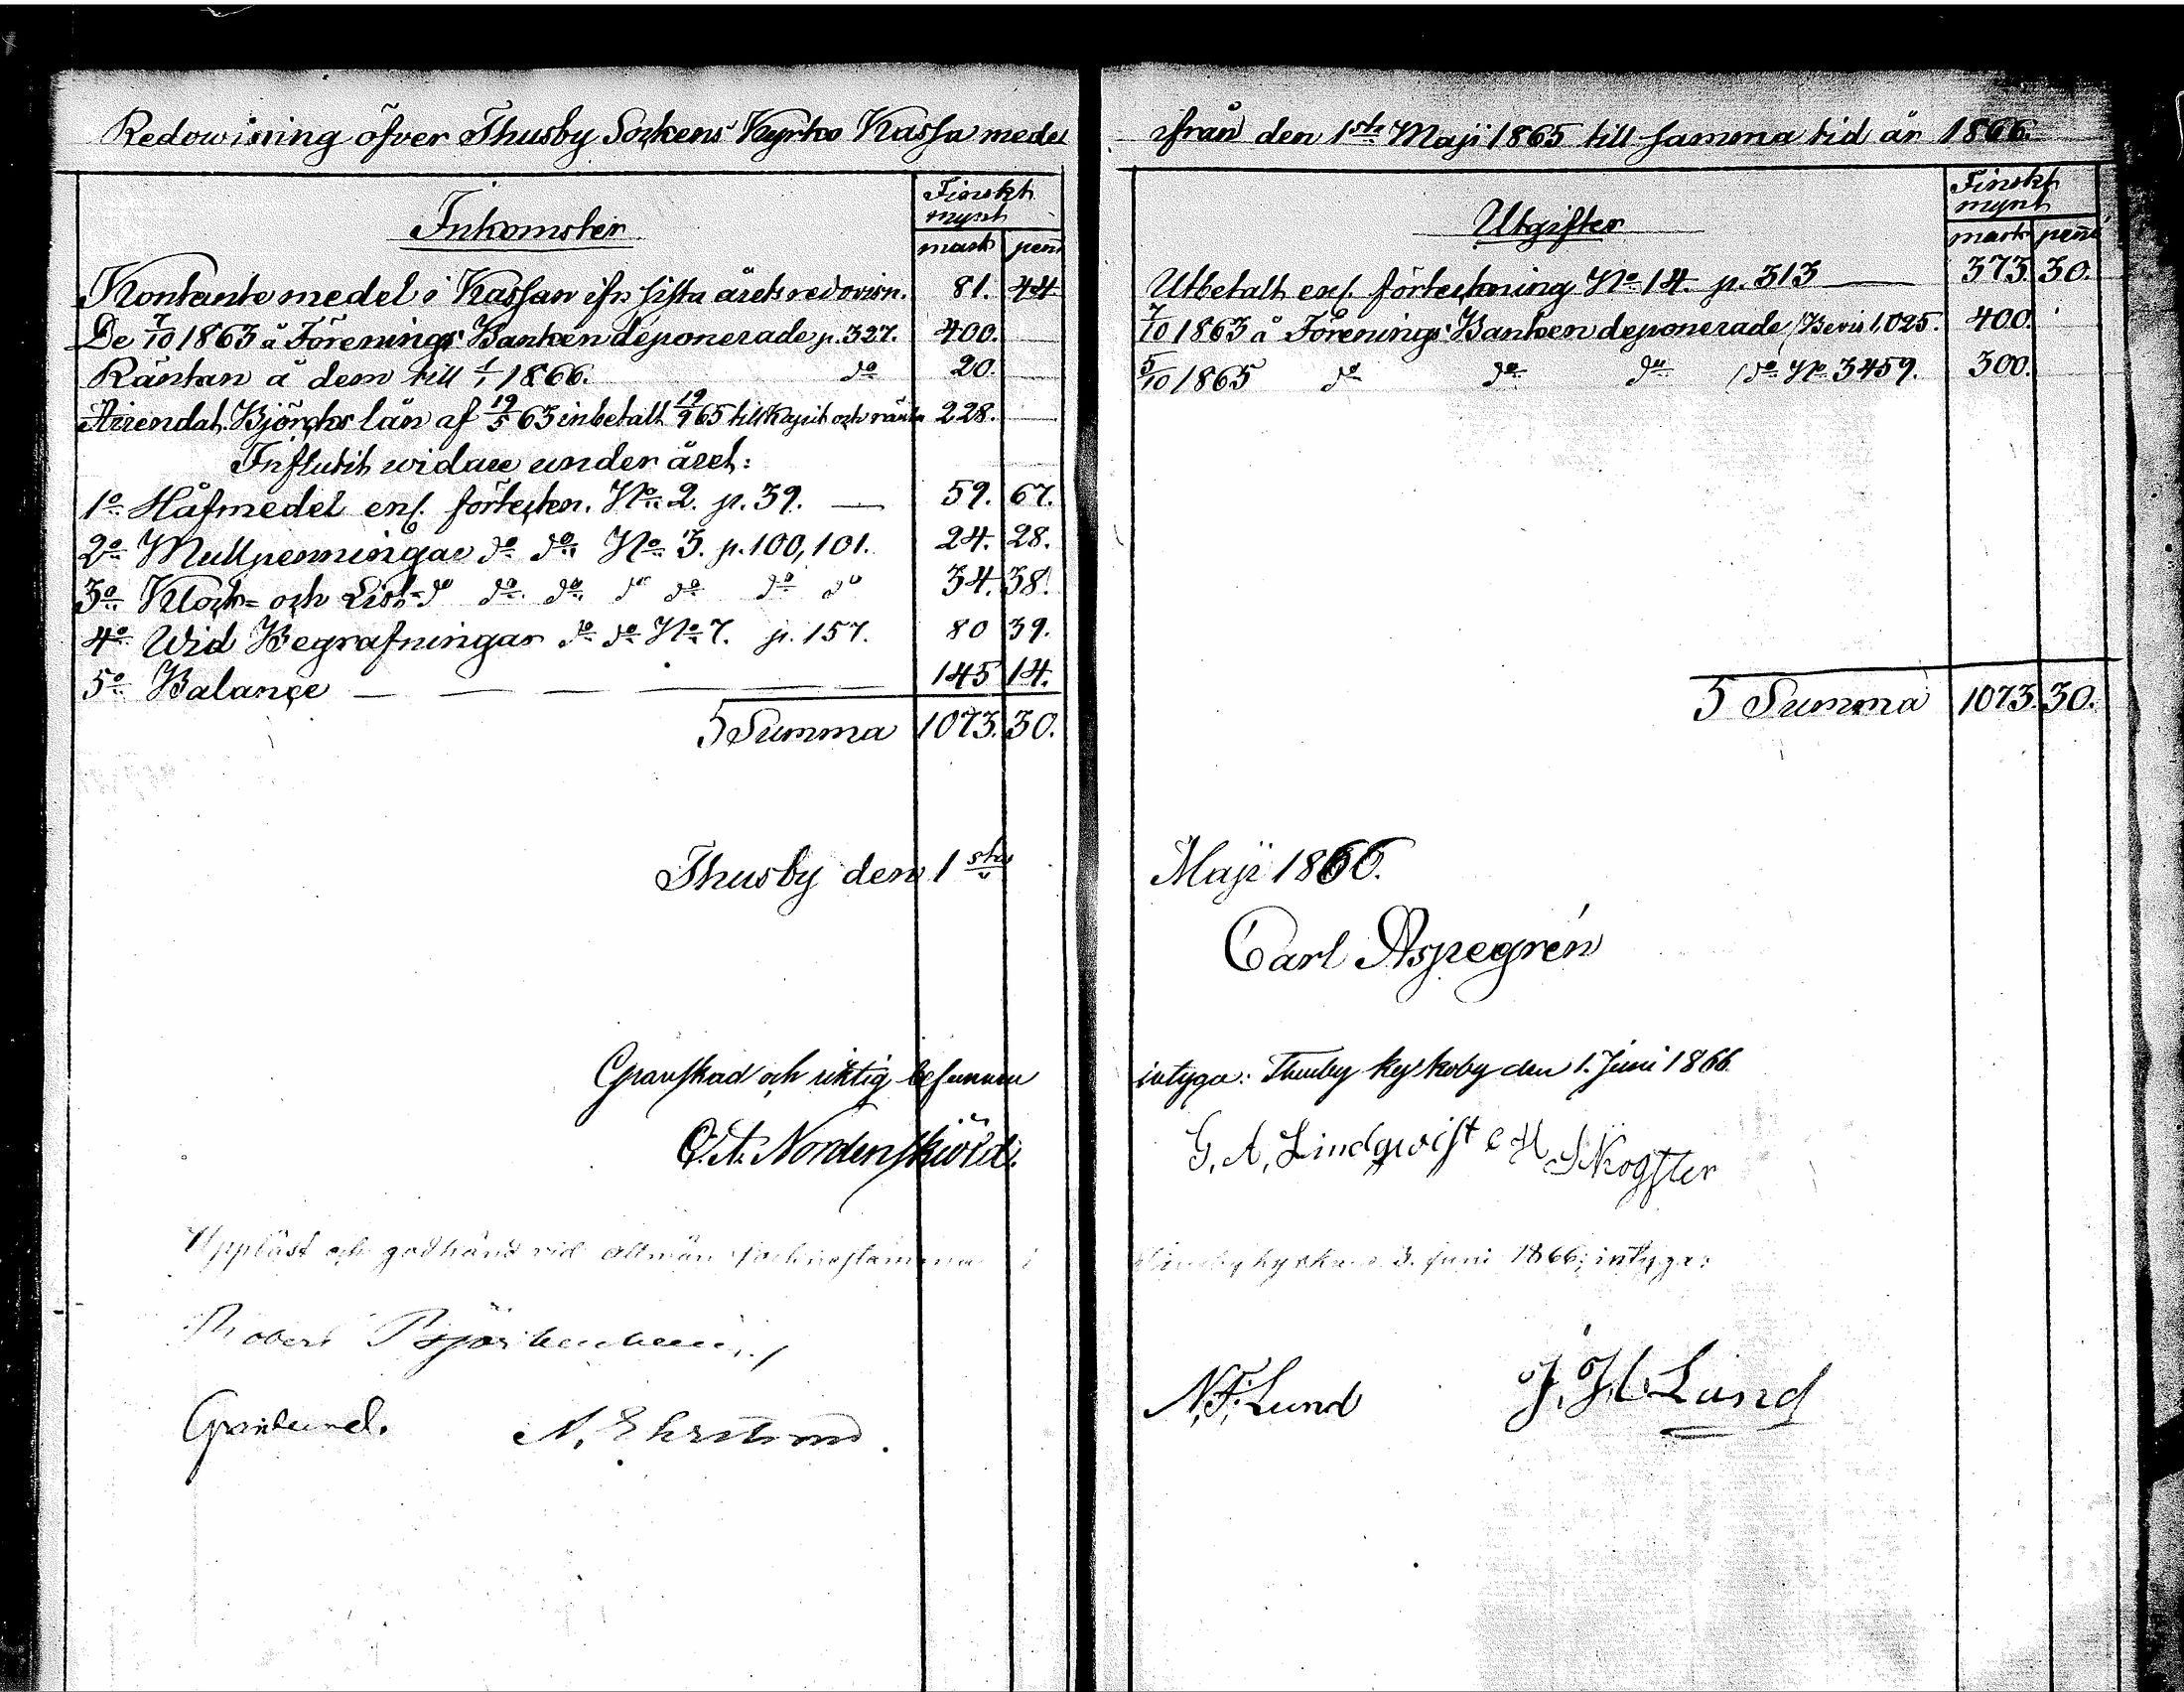 Redowisning öfver Thusby Sockens Kyrko Kassa medel
Inkomster
Finskt mynt
mark penni
Kontante medel i Kassan ifn sista årets redovisn. 81. 44.
De 7/10 1863 å Förenings Banken deponerade p. 327. 400.
Räntan å dem till 1/1 1866. do 20.
Arrendat. Björcks lån af 19/5 63 inbetalt 19/9 65 till Kapit och ränta 228.
Influtit widare under året:
1o Håfmedel enl. förteckn. No 2. p. 39. — 59. 67.
2o Mullpenningar do do No 3. p. 100, 101. 24. 28.
3o Klock- och List-do do do do do do do 34. 38.
4o Wid Begrafningar do do No 7. p. 157. 80 39.
5o Balançe — — — — 145 14.
Summa 1073. 30.
Thusby den 1sta
Granskad och riktig befunnen
O. A. Nordenskiöld.
Uppläst och godkänd vid allmän sockenstämma i
Robert Björkenheim
Granlund. A. Ehrström.
ifrån den 1sta Maji 1865 till samma tid år 1866.
Utgifter
Finskt mynt
mark penni
Utbetalt enl. förteckning No 14. p. 313 — 373. 30.
7/10 1863 å Förenings Banken deponerade (Bevis 1,025. 400.
5/10 1865 do do do (do No 3459. 300.
Summa 1073. 30.
Maji 1866.
Carl Aspegrén
intyga: Thusby kyrkoby den 1. Juni 1866.
G. A. Lindqwist C H Skogster
Thusby kyrka d. 3. juni 1866; intyga:
N. F. Lund J. H. Lund